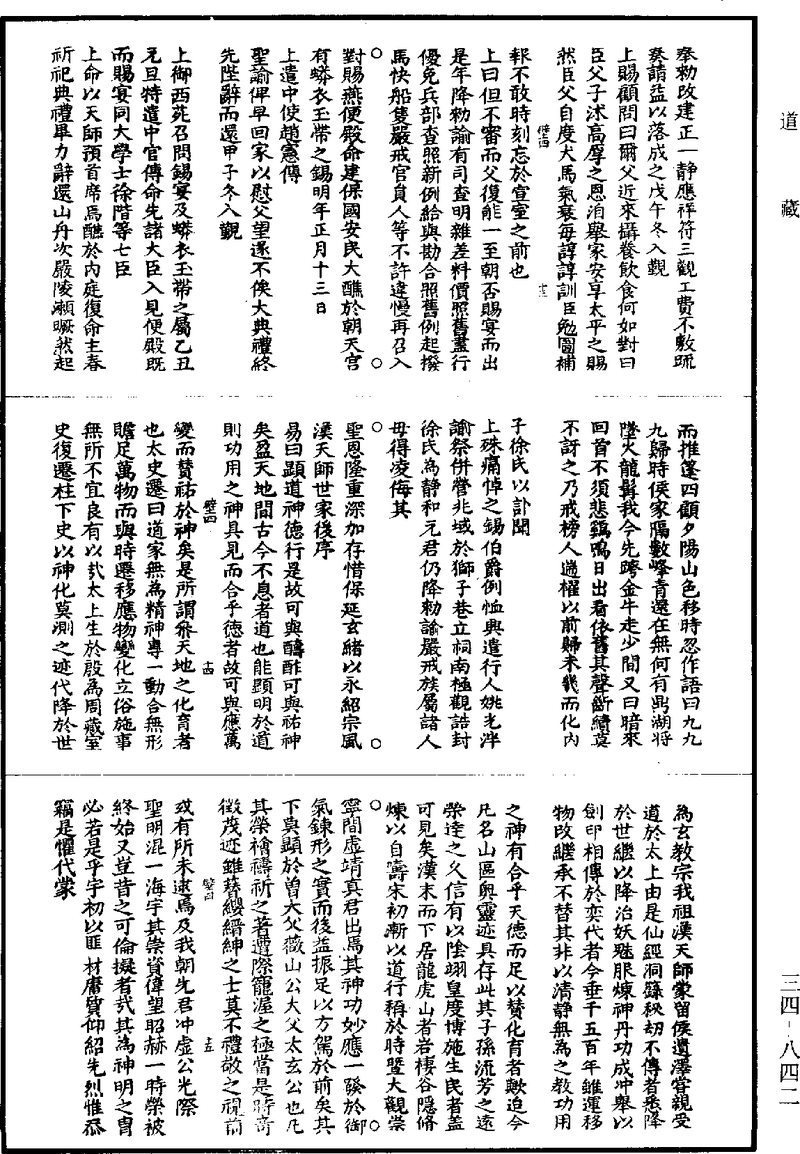 道藏
三四-八四二
奉勅改建正一静應祥符三觀工費不敷疏
奏請益以落成之戊午冬入覲
上賜顧問曰爾父近來攝養飲食何如對曰
臣父子沭高厚之恩洎舉家安享太平之賜
然臣父自度犬馬氣衰每諄諄訓臣勉圖補
壁四
十三
報不敢時刻忘於宣室之前也
上曰但不審而父復能一至朝否賜宴而出
是年降勅諭有司查明雜差料價照舊盡行
優免兵部查照新例給與勘合照舊例起撥
馬快船隻嚴戒官員人等不許違慢再召入
對賜燕便殿命建保國安民大醮於朝天宮
有蟒衣玉帶之錫明年正月十三日
上遣中使趙憲傳
聖諭俾早回家以慰父望遂不俟大典禮終
先陛辭而還甲子冬入覲
上御西苑召問錫宴及蟒衣玉帶之屬乙丑
元旦特遣中官傳命先諸大臣入見便殿既
而賜宴同大學士徐階等七臣
上命以天師預首席焉醮於内庭復命主春
祈祀典禮畢力辭還山舟次嚴陵瀬瞰然起
而推篷四顧夕陽山色移時忽作語曰九九
九歸時候家隔數峰青還在無何有鼎湖將
墜火龍髯我今先跨金牛走少間又曰暗來
回首不須悲鷄鳴日出看依舊其聲斷續莫
不訝之乃戒榜人過櫂以前歸未幾而化内
子徐氏以訃聞
上殊痛悼之錫伯爵例恤典遣行人姚光泮
諭祭併營兆域於獅子巷立祠南極觀誥封
徐氏為静和元君仍降勅諭嚴戒族屬諸人
毋得凌侮其
聖恩隆重深加存惜保延玄緒以永紹宗風
漢天師世家後序
易曰顯道神德行是故可與醻酢可與祐神
矣盈天地間古今不息者道也能顯明於道
則功用之神具見而合乎德者故可與應萬
壁四
十四
變而贊祐於神矣是所謂飛天地之化育者
也太史遷曰道家無為精神專一動合無形
贍足萬物而與時遷移應物變化立俗施事
無所不宜良有以哉太上生於殷為周藏室
史復遷柱下史以神化莫測之迹代降於世
為玄教宗我祖漢天師蒙留侯遺澤嘗親受
道於太上由是仙經洞籙秘切不傳者悉降
於世繼以降治妖魅服煉神丹功成冲舉以
劍印相傳於奕代者今垂千五百年雖運移
物改繼承不替其非以清静無為之教功用
之神有合乎天德而足以贊化育者歟迨今
凡名山區奥靈迹具存此其子孫流芳之遠
榮達之久信有以陰翊皇度博施生民者蓋
可見矣漢末而下居龍虎山者岩棲谷隱脩
煉以自壽宋初漸以道行稱於時暨大觀崇
寧間虚靖真君出焉其神功妙應一發於御
氣鍊形之實而後益振足以方駕於前矣其
下莫顯於曾大父薇山公大父太玄公也凡
其榮禬禱祈之著遭際寵渥之極當是時奇
徵茂迹雖簪纓縉紳之士莫不禮敬之視前
壁四
十五
或有所未逮焉及我朝先君冲虚公光際
聖明混一海宇其崇資偉望昭赫一時榮被
終始又豈昔之可倫擬者哉其為神明之胄
必若是乎宇初以匪材庸質仰紹先烈惟忝
竊是懼代蒙